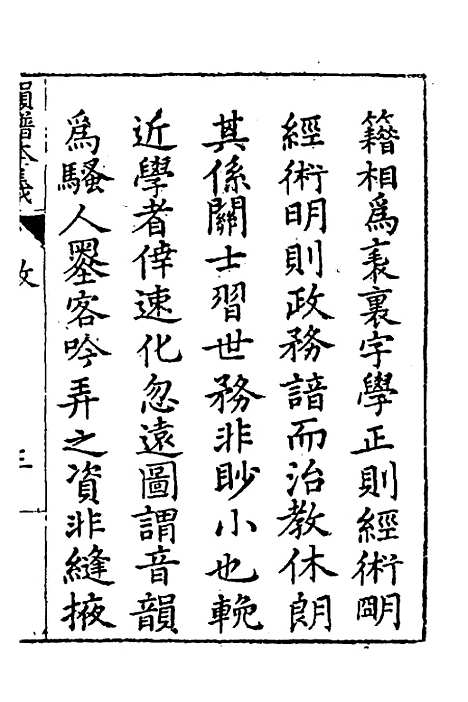 籍相爲表裏字學正則經術明
經術明則政務諳而治教休朗
其係關士習世務非眇小也輓
近學者倖速化忽遠圖謂音韻
爲騷人墨客吟弄之資非縫掖
韻譜本義
敘
三